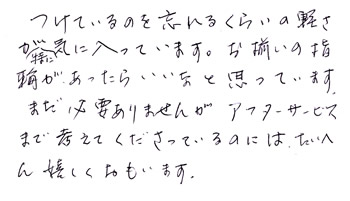 つけているのを忘れるくらいの軽さ
が特に気に入っています。お揃いの指
輪があったらいいなと思っています。
まだ必要ありませんがアフターサービス
まで考えてくださっているのには、たいへ
ん嬉しくおもいます。